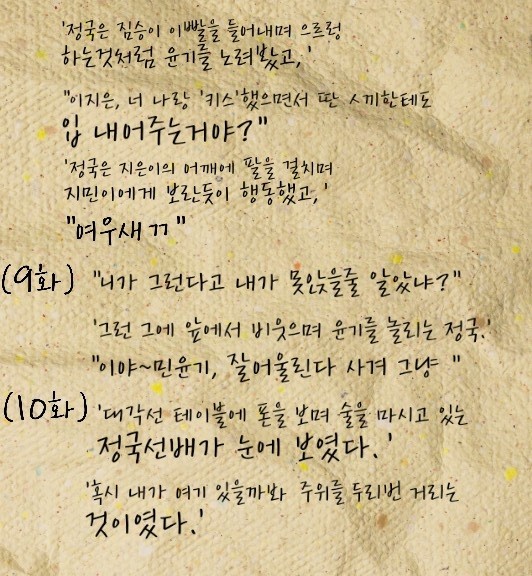 '정국은 짐승이 이빨을 들어내며 으르렁
하는것처럼 윤기를 노려봤고,'
"이지은, 너 나랑 '키스'했으면서 딴 ㅅ끼한테도
입 내어주는거야?"
'정국은 지은이의 어깨에 팔을 걸치며
지민이에게 보란듯이 행동했고,'
"여우새ㄲ"
(9화) "니가 그런다고 내가 못앉을줄 알았냐?"
'그런 그에 앞에서 비웃으며 윤기를 놀리는 정국.'
"이야~민윤기, 잘어울린다 사겨 그냥 "
(10화) '대각선 테이블에 폰을 보며 술을 마시고 있는
정국선배가 눈에 보였다.'
'혹시 내가 여기 있을까봐 주위를 두리번 거리는
것이였다.'